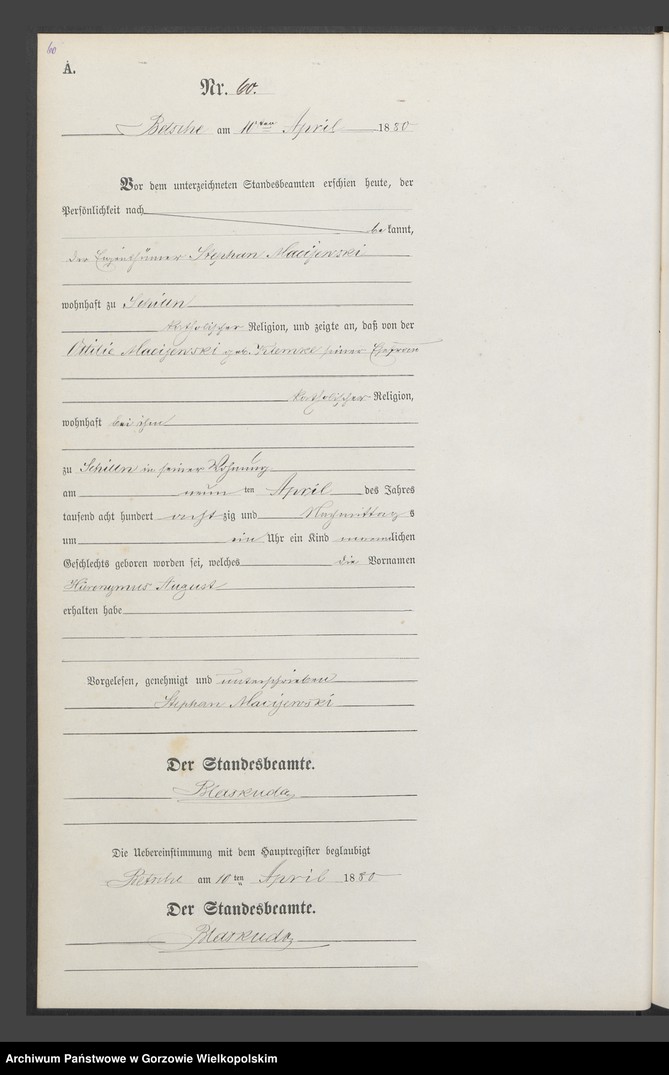 60
A.
Nr. 60.
Betsche am 10ten April 1880
Vor dem unterzeichneten Standesbeamten erschien heute, der
Persönlichkeit nach
bekannt,
der Eigenthümer Stephan Macijewski
wohnhaft zu Schilln
katholischer Religion, und zeigte an, daß von der
Ottilie Macijewski geb. Klemke seiner Ehefrau
katholischer Religion,
wohnhaft bei ihm
zu Schilln in seiner Wohnung
am neun ten April des Jahres
tausend acht hundert acht zig und Nachmittag s
um ein Uhr ein Kind maennlichen
Geschlechts geboren worden sei, welches die Vornamen
Hieronymus August
erhalten habe
Vorgelesen, genehmigt und unterschrieben
Stephan Macijewski
Der Standesbeamte.
Blaskuda
Die Uebereinstimmung mit dem Hauptregister beglaubigt
Betsche am 10ten April 1880
Der Standesbeamte.
Blaskuda
Archiwum Państwowe w Gorzowie Wielkopolskim